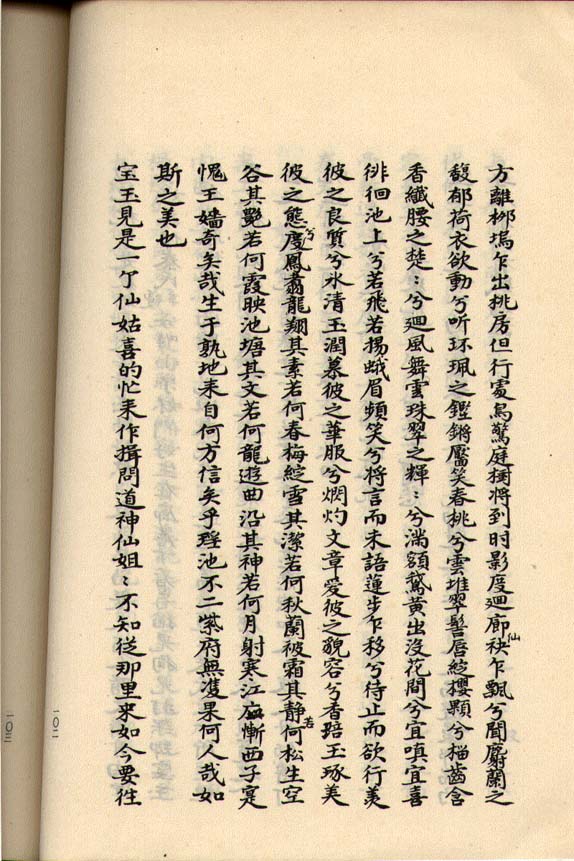 方離柳塢乍出桃房但行處鳥驚庭樹將到时影度廻廊仙袂乍飄兮聞麝蘭之
馥郁荷衣欲動兮听环珮之鏗鏘靨笑春桃兮雲堆翠髻唇綻櫻顆兮榴齒含
香纖腰之楚〻兮廻風舞雪珠翠之輝〻兮滿額鵝黃出沒花間兮宜嗔宜喜
徘徊池上兮若飛若揚蛾眉頻笑兮將言而未語蓮步乍移兮待止而欲行羡
彼之良質兮氷清玉潤慕彼之華服兮熌灼文章愛彼之貌容兮香踣玉琢美
彼之態度兮鳳翥龍翔其素若何春梅綻雪其潔若何秋蘭被霜其静若何松生空
谷其艷若何霞映池塘其文若何龍遊曲沿其神若何月射寒江應慚西子寔
愧王嬙奇矣哉生于孰地来自何方信矣乎瑶池不二紫府無雙果何人哉如
斯之美也
宝玉見是一个仙姑喜的忙来作揖問道神仙姐〻不知従那里来如今要徃
一〇二
一〇三